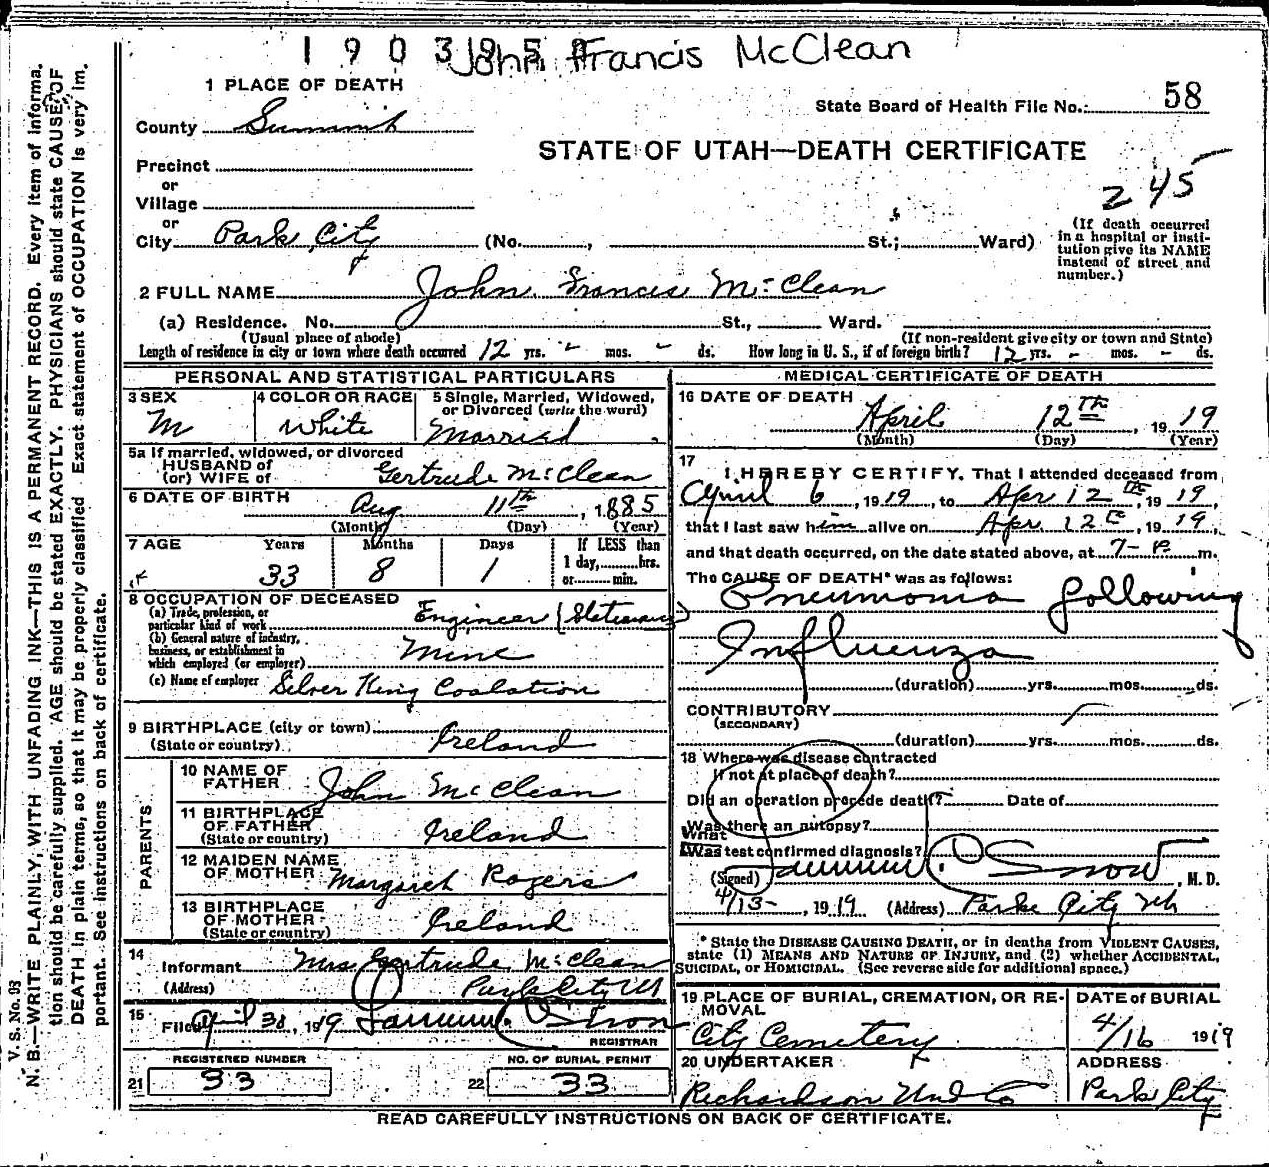 1903195
John Francis McClean
1 PLACE OF DEATH
State Board of Health File No.: 58
County Summit
STATE OF UTAH—DEATH CERTIFICATE
Precinct
or
Village
245
or
City Park City (No. , St.; Ward)
(If death occurred in a hospital or institution give its NAME instead of street and number.)
2 FULL NAME John Francis McClean
(a) Residence. No. St., Ward.
(Usual place of abode) (If non-resident give city or town and State)
Length of residence in city or town where death occurred 12 yrs. - mos. - ds. How long in U. S., if of foreign birth? 12 yrs. - mos. - ds.
PERSONAL AND STATISTICAL PARTICULARS
3 SEX M
4 COLOR OR RACE White
5 Single, Married, Widowed, or Divorced (write the word) Married
5a If married, widowed, or divorced
HUSBAND of
(or) WIFE of Gertrude McClean
6 DATE OF BIRTH Aug 11th, 1885
(Month) (Day) (Year)
7 AGE Years Months Days If LESS than
33 8 1 1 day,......hrs.
or......min.
8 OCCUPATION OF DECEASED
(a) Trade, profession, or particular kind of work Engineer (Stationary)
(b) General nature of industry, business, or establishment in which employed (or employer) Mine
(c) Name of employer Silver King Coalation
9 BIRTHPLACE (city or town)
(State or country) Ireland
PARENTS
10 NAME OF FATHER John McClean
11 BIRTHPLACE OF FATHER
(State or country) Ireland
12 MAIDEN NAME OF MOTHER Margaret Rogers
13 BIRTHPLACE OF MOTHER
(State or country) Ireland
14 Informant Mrs Gertrude McClean
(Address) Park City Ut
15 Filed April 30, 1919 Snow
REGISTRAR
REGISTERED NUMBER
21 33
NO. OF BURIAL PERMIT
22 33
MEDICAL CERTIFICATE OF DEATH
16 DATE OF DEATH April 12TH, 1919
(Month) (Day) (Year)
17 I HEREBY CERTIFY, That I attended deceased from
April 6, 1919, to Apr 12th, 1919,
that I last saw him alive on Apr 12th, 1919,
and that death occurred, on the date stated above, at 7-P.m.
The CAUSE OF DEATH* was as follows:
Pneumonia following
Influenza
(duration) yrs. mos. ds.
CONTRIBUTORY
(SECONDARY)
(duration) yrs. mos. ds.
18 Where was disease contracted
If not at place of death?
Did an operation precede death? Date of
Was there an autopsy?
What
Was test confirmed diagnosis?
(Signed) Snow, M. D.
4/13-, 1919 (Address) Park City Ut
* State the DISEASE CAUSING DEATH, or in deaths from VIOLENT CAUSES,
state (1) MEANS AND NATURE OF INJURY, and (2) whether ACCIDENTAL,
SUICIDAL, or HOMICIDAL. (See reverse side for additional space.)
19 PLACE OF BURIAL, CREMATION, OR REMOVAL
City Cemetery
DATE of BURIAL
4/16 1919
20 UNDERTAKER
Richardson Und Co
ADDRESS
Park City
READ CAREFULLY INSTRUCTIONS ON BACK OF CERTIFICATE.
V. S. No. 98
N. B.—WRITE PLAINLY, WITH UNFADING INK—THIS IS A PERMANENT RECORD. Every item of informa-
tion should be carefully supplied. AGE should be stated EXACTLY. PHYSICIANS should state CAUSE OF
DEATH in plain terms, so that it may be properly classified. Exact statement of OCCUPATION is very im-
portant. See instructions on back of certificate.